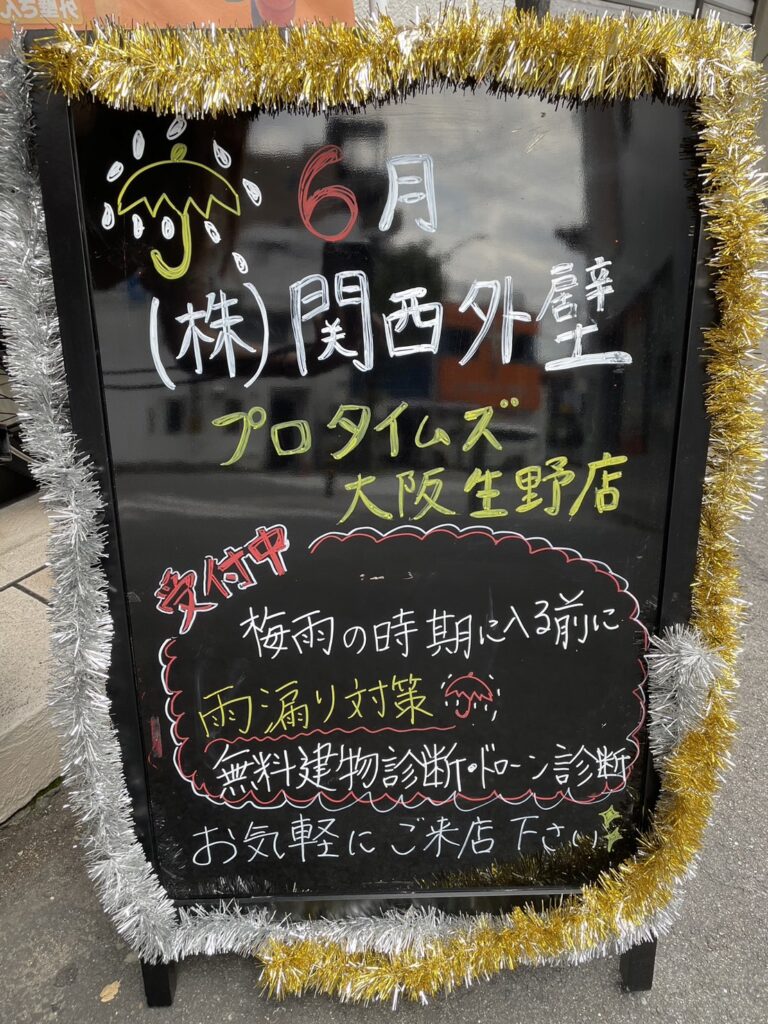 6月
(株)関西外壁
プロタイムズ
大阪生野店
受付中
梅雨の時期に入る前に
雨漏り対策
無料建物診断・ドローン診断
お気軽にご来店下さい